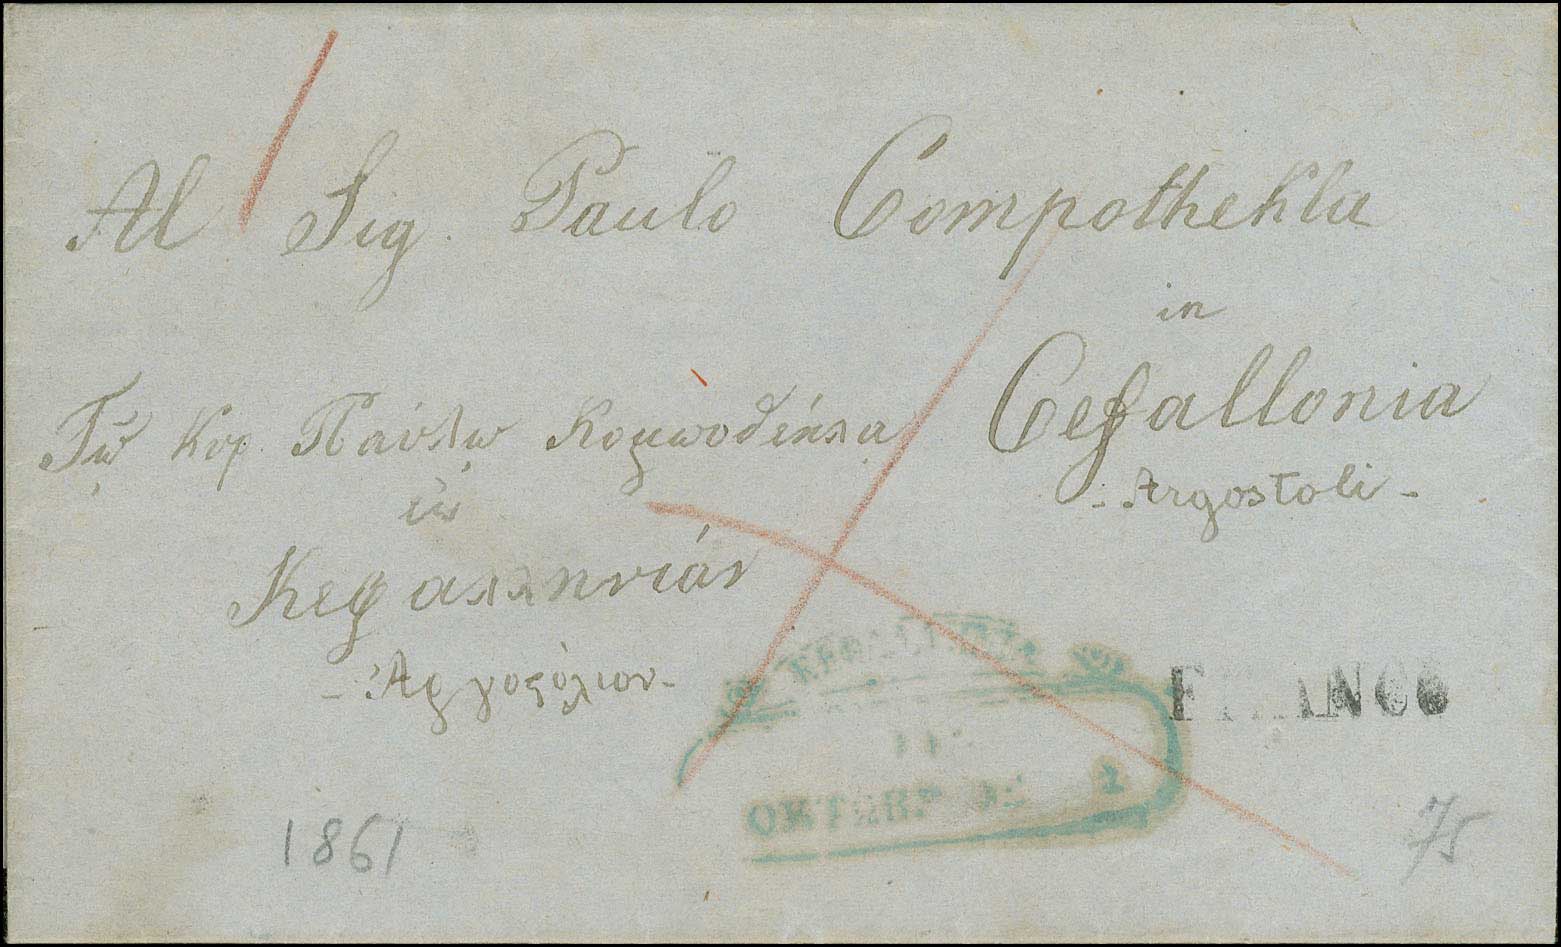 Al Sig. Paulo Compothekla
in
Cefallonia
- Argostoli -
Τῷ Κυρ. Παύλῳ Κομποθέκλᾳ
εἰς
Κεφαλληνίαν
- Ἀργοστόλιον -
ΚΕΦΑΛΛΗΝΙΑ
ΟΚΤΩΒΡΙΟΣ 2
FRANCO
1861
75